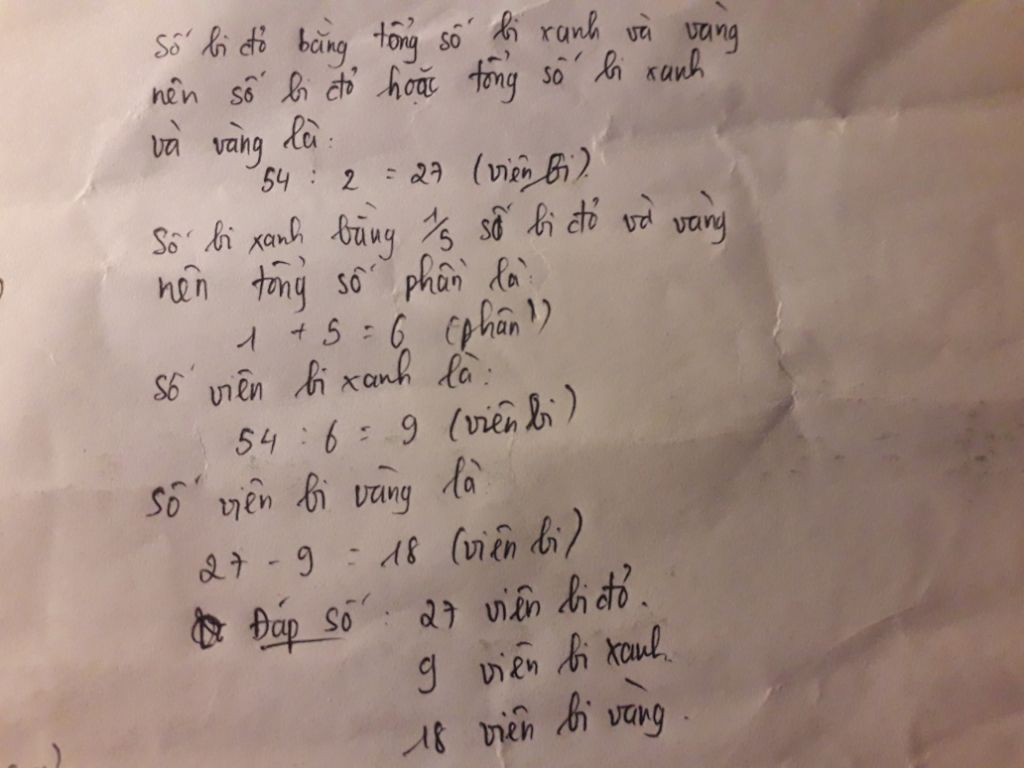 Số bi đỏ bằng tổng số bi xanh và vàng
nên số bi đỏ hoặc tổng số bi xanh
và vàng là:
54 : 2 = 27 (viên bi).
Số bi xanh bằng 1/5 số bi đỏ và vàng
nên tổng số phần là:
1 + 5 = 6 (phần)
Số viên bi xanh là:
54 : 6 = 9 (viên bi)
Số viên bi vàng là
27 - 9 = 18 (viên bi)
Đáp số : 27 viên bi đỏ.
9 viên bi xanh.
18 viên bi vàng.